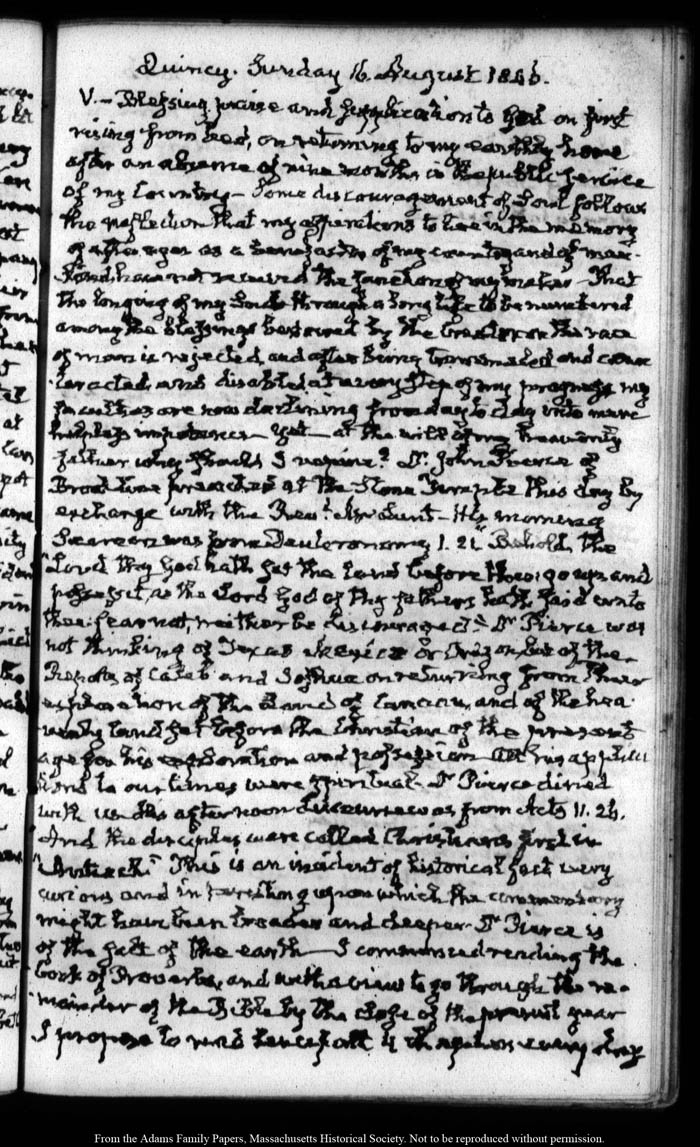 Quincy. Sunday 16. August 1846.
V.— Blessing, praise and supplication to God on first
rising from bed, on returning to my earthly home
after an absence of nine months in the public service
of my Country— Some discouragement of Soul follows
the reflection that my aspirations to live in the memory
of after ages as a benefactor of my country and of man-
kind have not received the sanction of my maker— That
the longing of my Soul through a long life to be numbered
among the blessings bestowed by the Creator on the race
of man is rejected, and after being trammeled and coun
teracted, and disabled at every step of my progress my
faculties are now declining from day to day into mere
helpless impotence— Yet— at the will of my heavenly
father why should I repine? Dr. John Pierce of
Brookline preached at the Stone Temple this day by
exchange with the Revd. Mr Lunt— His morning
Sermon was from Deuteronomy 1. 21. Behold, the
Lord thy God hath set the land before thee: go up and
possess it, as the Lord God of thy fathers hath said unto
thee: fear not, neither be discouraged." Dr Pierce was
not thinking of Texas Mexico or Oregon but of the
Reports of Caleb and Joshua on returning from their
exploration of the Land of Canaan, and of the hea-
venly land set before the Christian of the present
age for his exploration and possession— All his applica
tions to our times were spiritual— Dr Pierce dined
with us— his afternoon discourse was from Acts 11. 26.
And the disciples were called Christians first in
"Antioch." This is an incident of historical fact very
curious and interesting upon which the commentary
might have been broader and deeper. Dr Pierce is
of the salt of the earth— I commenced reading the
book of Proverbs, and with a view to go through the re-
mainder of the Bible by the close of the present year
I propose to read henceforth 4 chapters every day
From the Adams Family Papers, Massachusetts Historical Society. Not to be reproduced without permission.